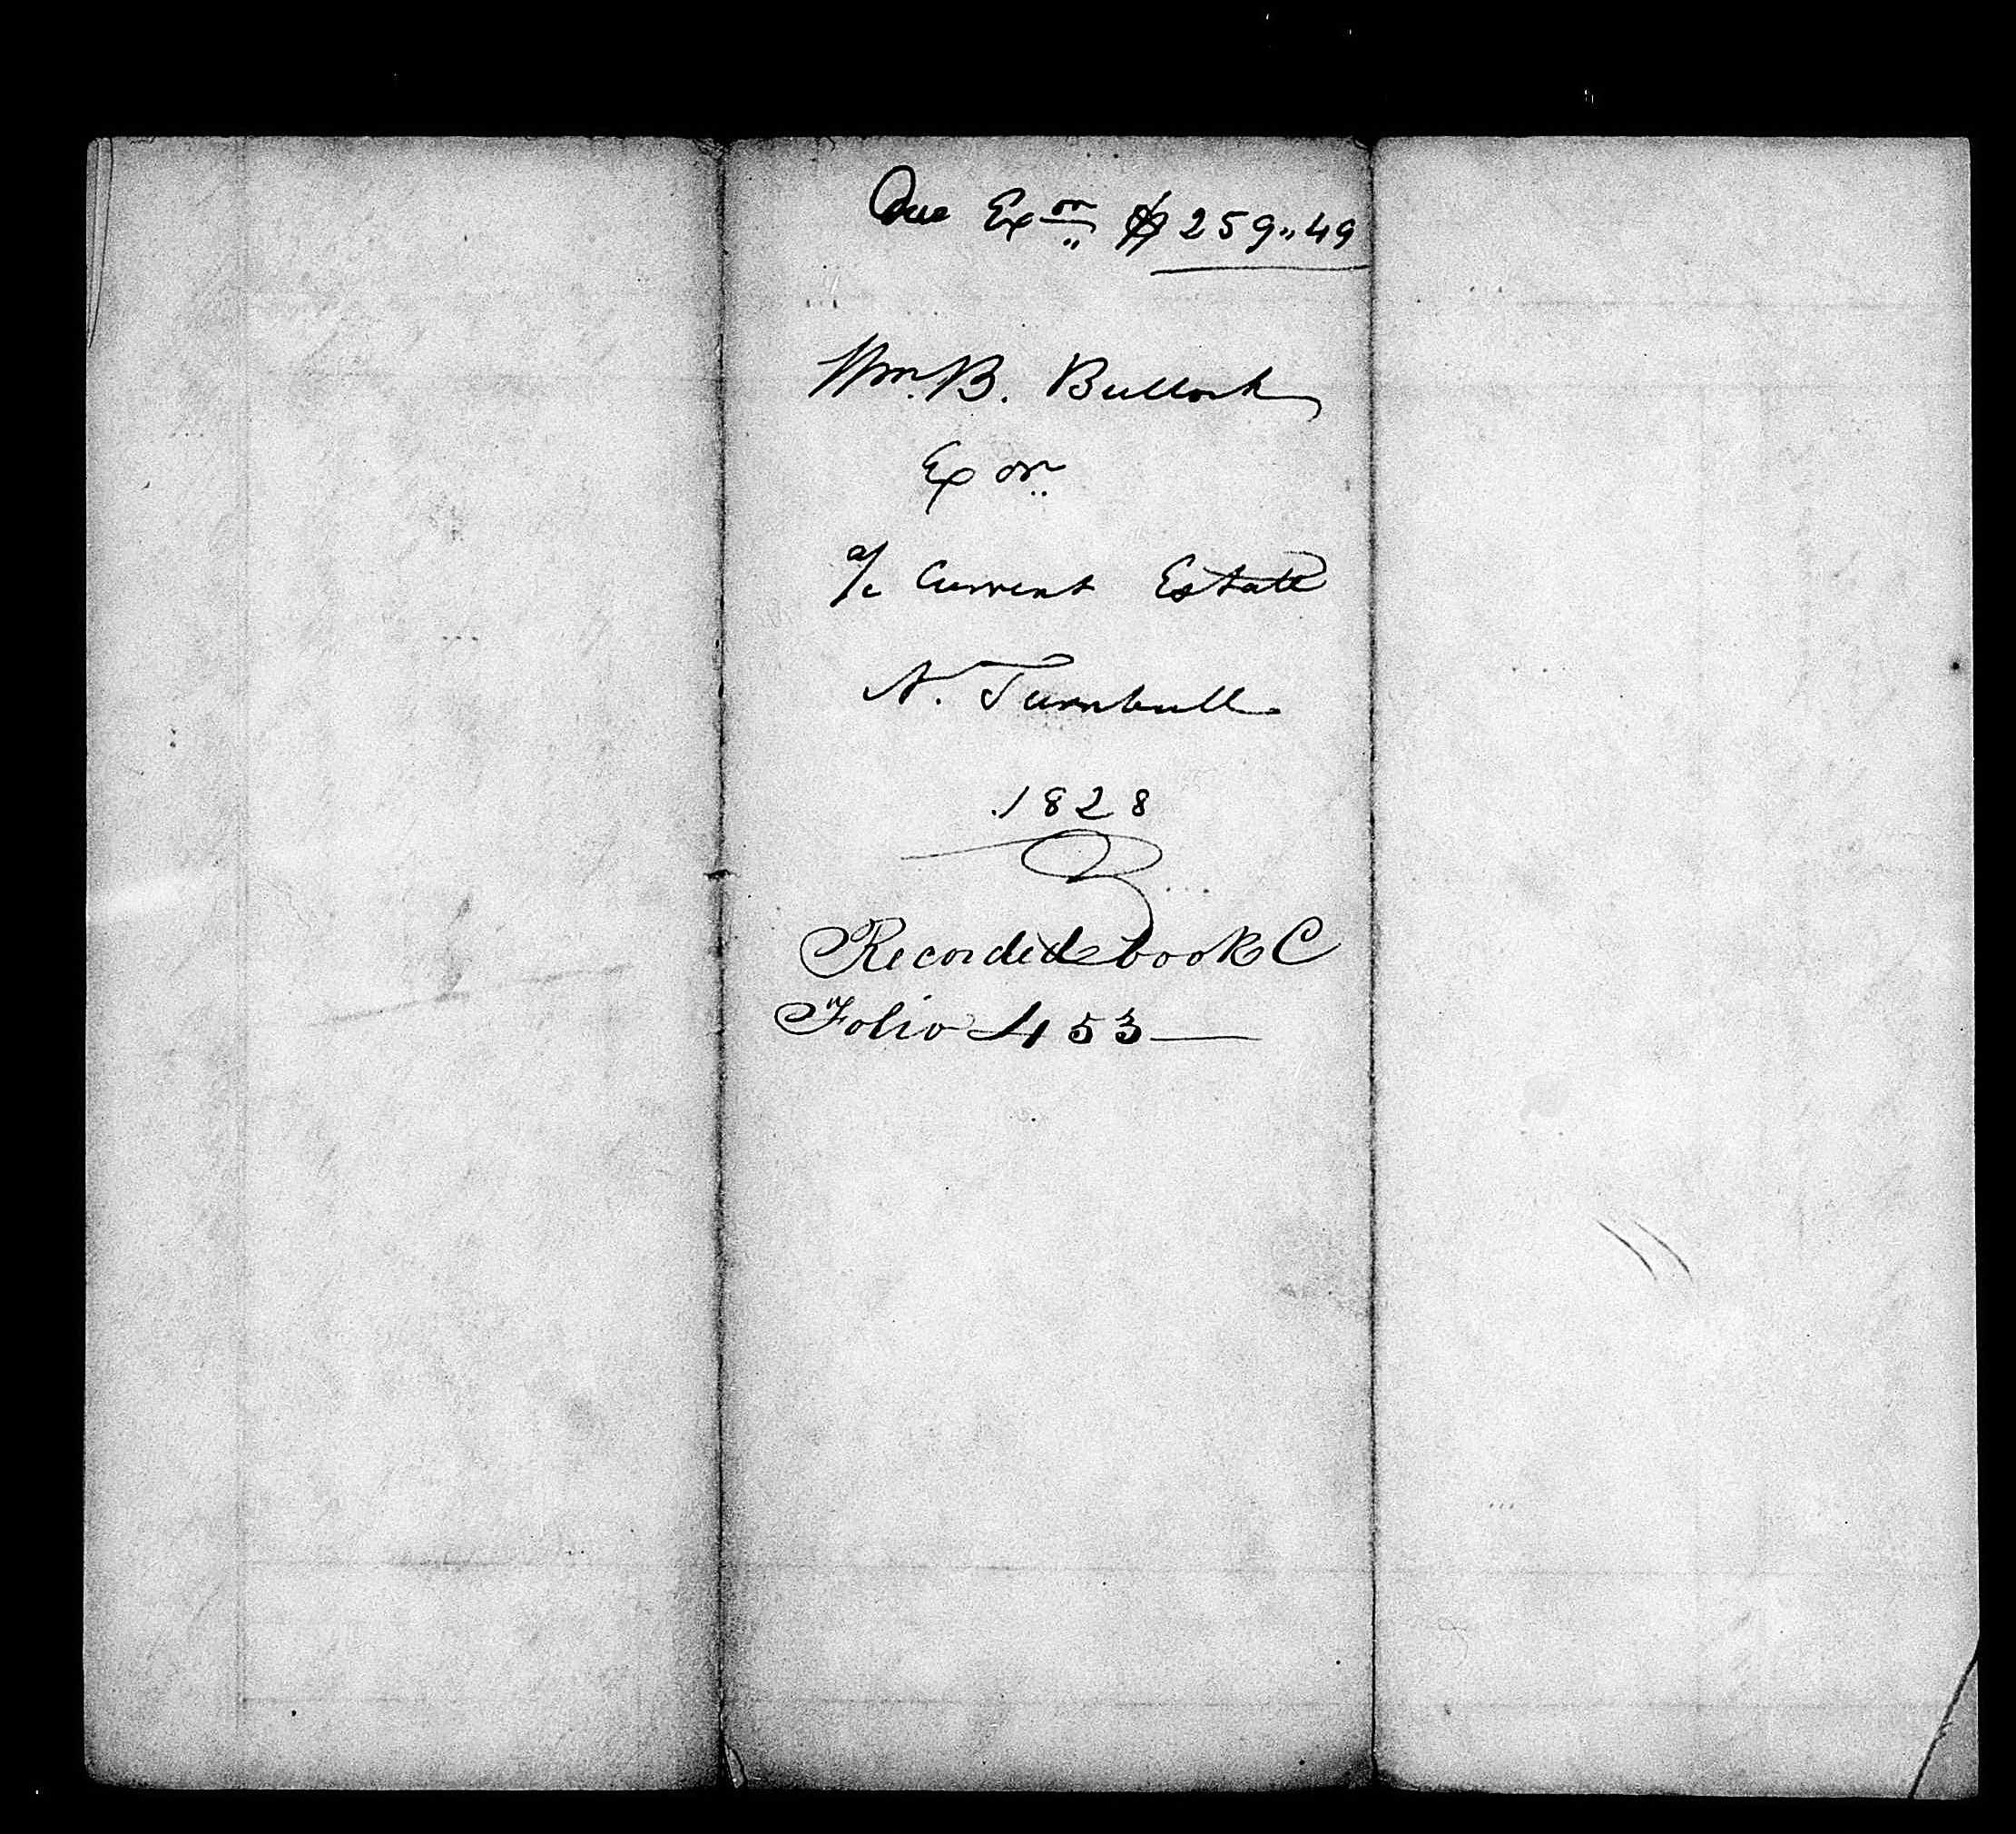 Due Exor $259,,49
Wm. B. Bullock
Exor
a/c Current Estate
N. Turnbull
1828
Recorded book C
Folio 453